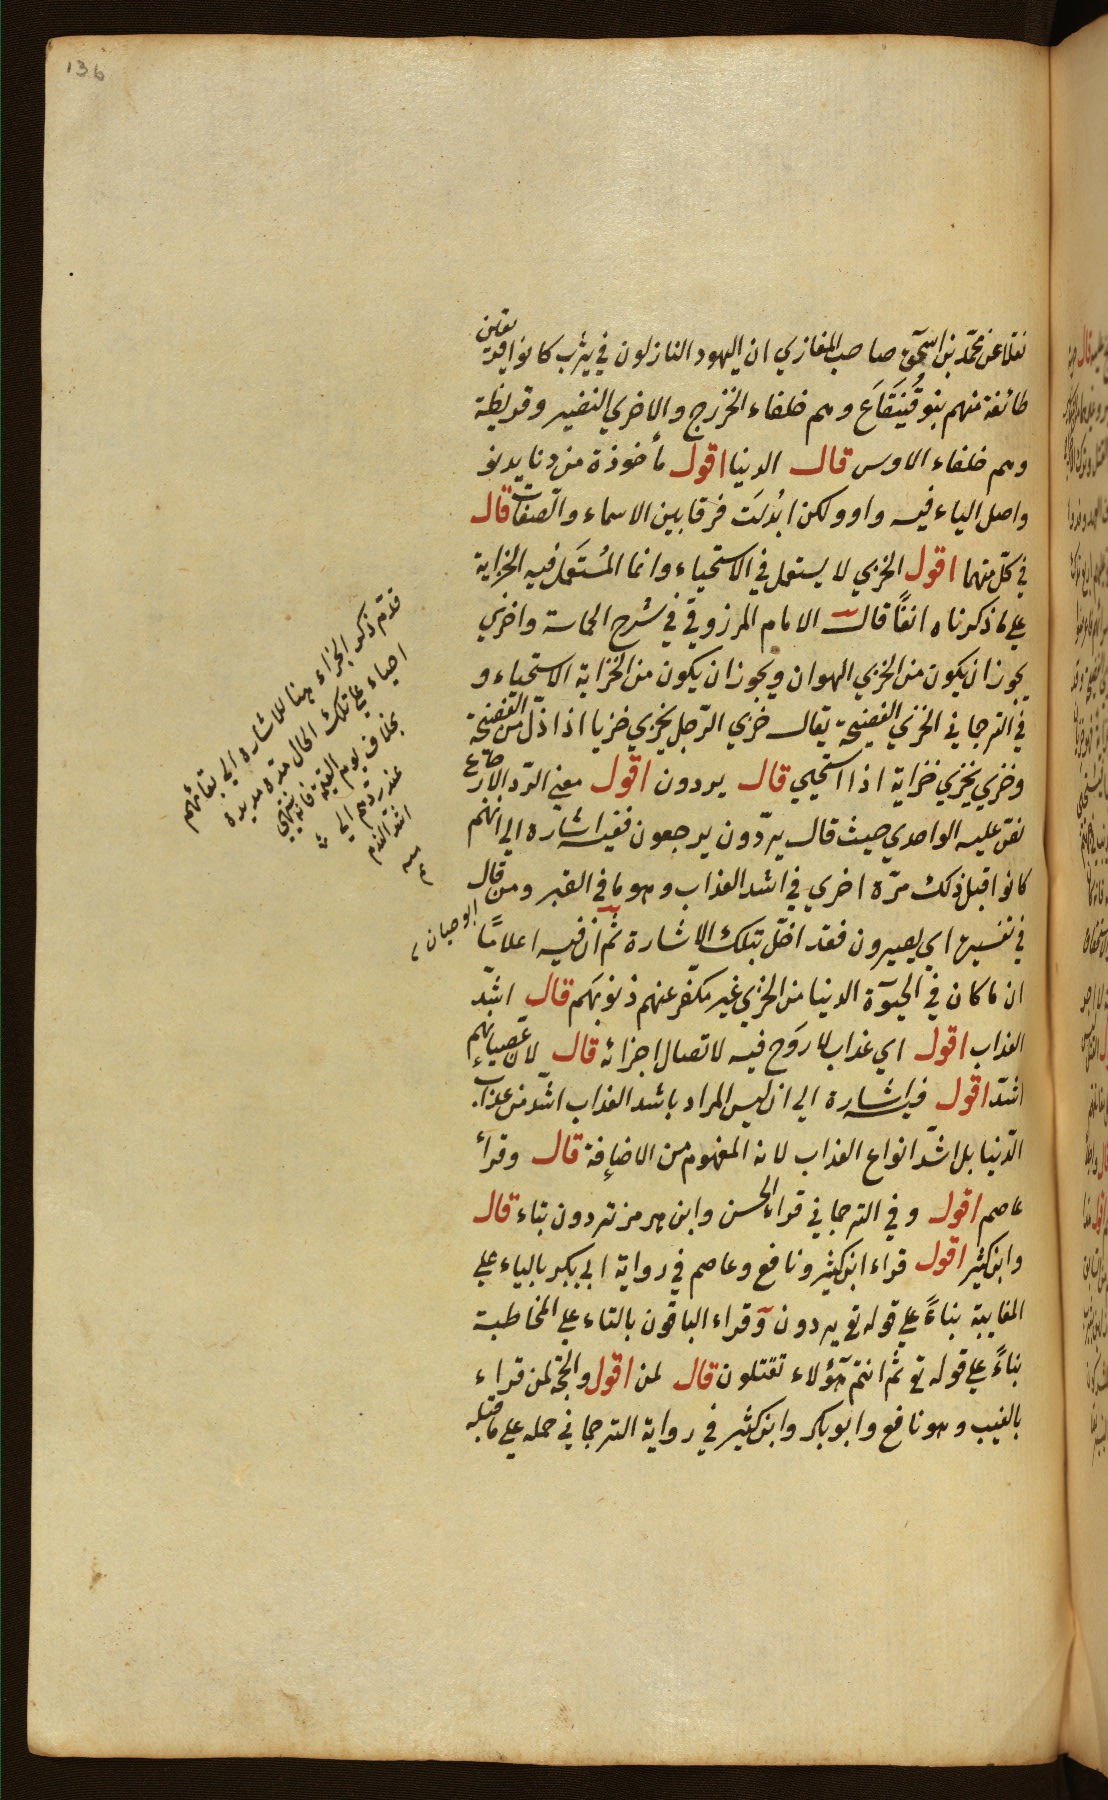 136
نقلا عن محمد بن اسحق صاحب المغازي ان اليهود النازلون في يثرب كانوا فرقتين
طائفة منهم بنو قَينقَاع وهم خلفاء الخزرج والاخري النضير وقريظة
وهم خلفاء الاوس قال الدنيا اقول مأخوذة من دنا يدنو
واصل الياء فيه واو ولكن ابُدلَت فرقا بين الاسماء والصّفات قال
في كل منهما اقول الخزي لا يستعمل في الاستحياء وانما المُستَعمل فيه الخزاية
علي ما ذكرناه انفًا قال الامام المرزوقي في شرح الحماسة واخزي
يجوز ان يكون من الخزي الهوان ويجوز ان يكون من الخزاية الاستحياء و
في الترجماني الخزي الفضيحة يقال خزي الرّجل يخزي خزيا اذا ذلّ من الفضيحة
وخزي يخزي خزاية اذا استحيي قال يردون اقول معني الردّ الارجاع
نصّ عليه الواحدي حيث قال يردّون يرجعون ففيه اشارة الي انهم
كانوا قبل ذلك مرّة اخري في اشد العذاب وهو ما في القبر ومن قال
في تفسيره اي يصيرون فقد اخلّ بتلك الاشارة ثم ان فيه اعلامًا
ابو حيان
ان ما كان في الحيوٓة الدنيا من الخزي غير مكفر عنهم ذنوبهم قال اشدّ
العذاب اقول اي عذاب لا رَوح فيه لاتصال اجزائه قال لان عصيانهم
اشدّ اقول فيه اشارة الي ان ليس المراد باشد العذاب اشدّ من عذاب
الدّنيا بل اشدّ انواع العذاب لانه المفهوم من الاضافة قال وقرأ
عاصم اقول وفي الترجماني قراء الحسن وابن هرمز تردون بتاء قال
وابن كثير اقول قراء ابن كثير ونافع وعاصم في رواية ابي بكر بالياء علي
المغايبة بناءً علي قوله تع يردون وقراء الباقون بالتاء علي المخاطبة
بناءً علي قوله تع ثم انتم هٓؤلاء تقتلون قال لمن اقول والحجة لمن قراء
بالغيب وهو نافع وابو بكر وابن كثير في رواية الترجماني حمله علي ما قبله
قدّم ذكر الجزاء هنا للاشارة الي بقائهم
احياء علي تلك الحال مدة مديدة
بخلاف يوم القيمة فانه ينتهي
عند ردّهم الي
اشد العذاب
منه